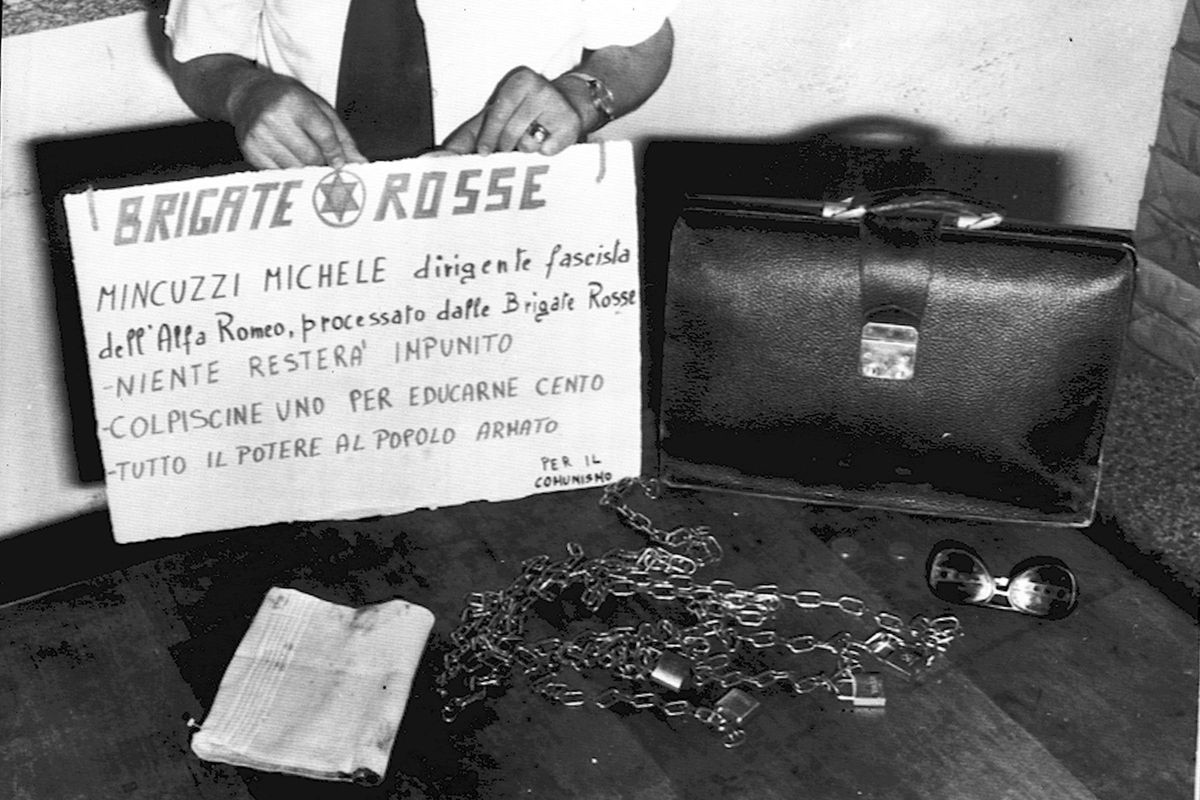 BRIGATE ROSSE
MINCUZZI MICHELE dirigente fascista
dell'Alfa Romeo, processato dalle Brigate Rosse
-NIENTE RESTERA' IMPUNITO
-COLPISCINE UNO PER EDUCARNE CENTO
-TUTTO IL POTERE AL POPOLO ARMATO
PER IL
COMUNISMO